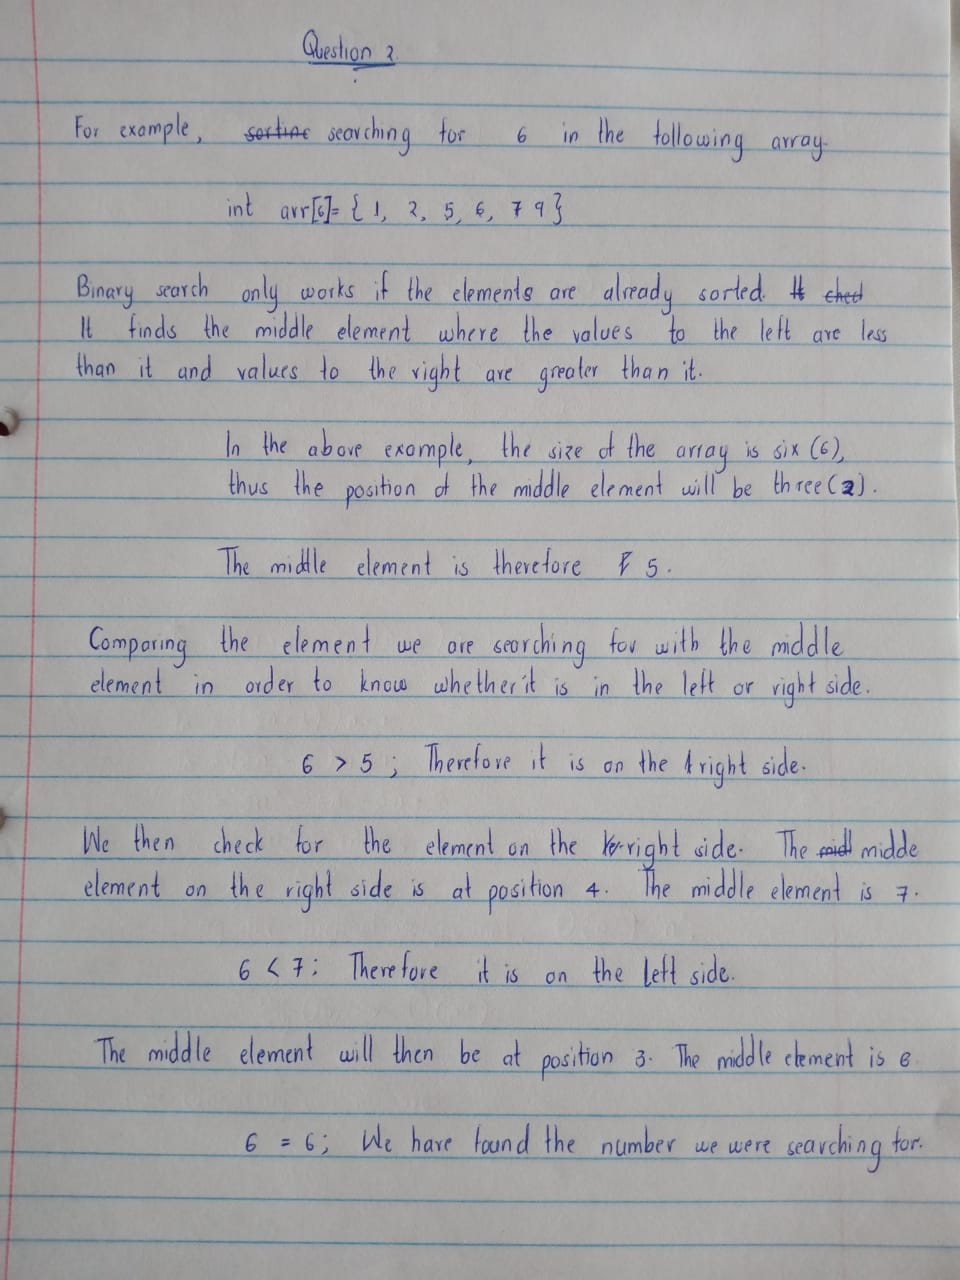 Question 2
For example, sortine searching for 6 in the following array.
int arr[6]= { 1, 2, 5, 6, 7 9 }
Binary search only works if the elements are already sorted. It ched
It finds the middle element where the values to the left are less
than it and values to the right are greater than it.
In the above example, the size of the array is six (6),
thus the position of the middle element will be three (2).
The middle element is therefore 5.
Comparing the element we are searching for with the middle
element in order to know whether it is in the left or right side.
6 > 5 ; Therefore it is on the right side.
We then check for the element on the right side. The midl midde
element on the right side is at position 4. The middle element is 7.
6 < 7; Therefore it is on the left side.
The middle element will then be at position 3. The middle element is 6
6 = 6; We have found the number we were searching for.